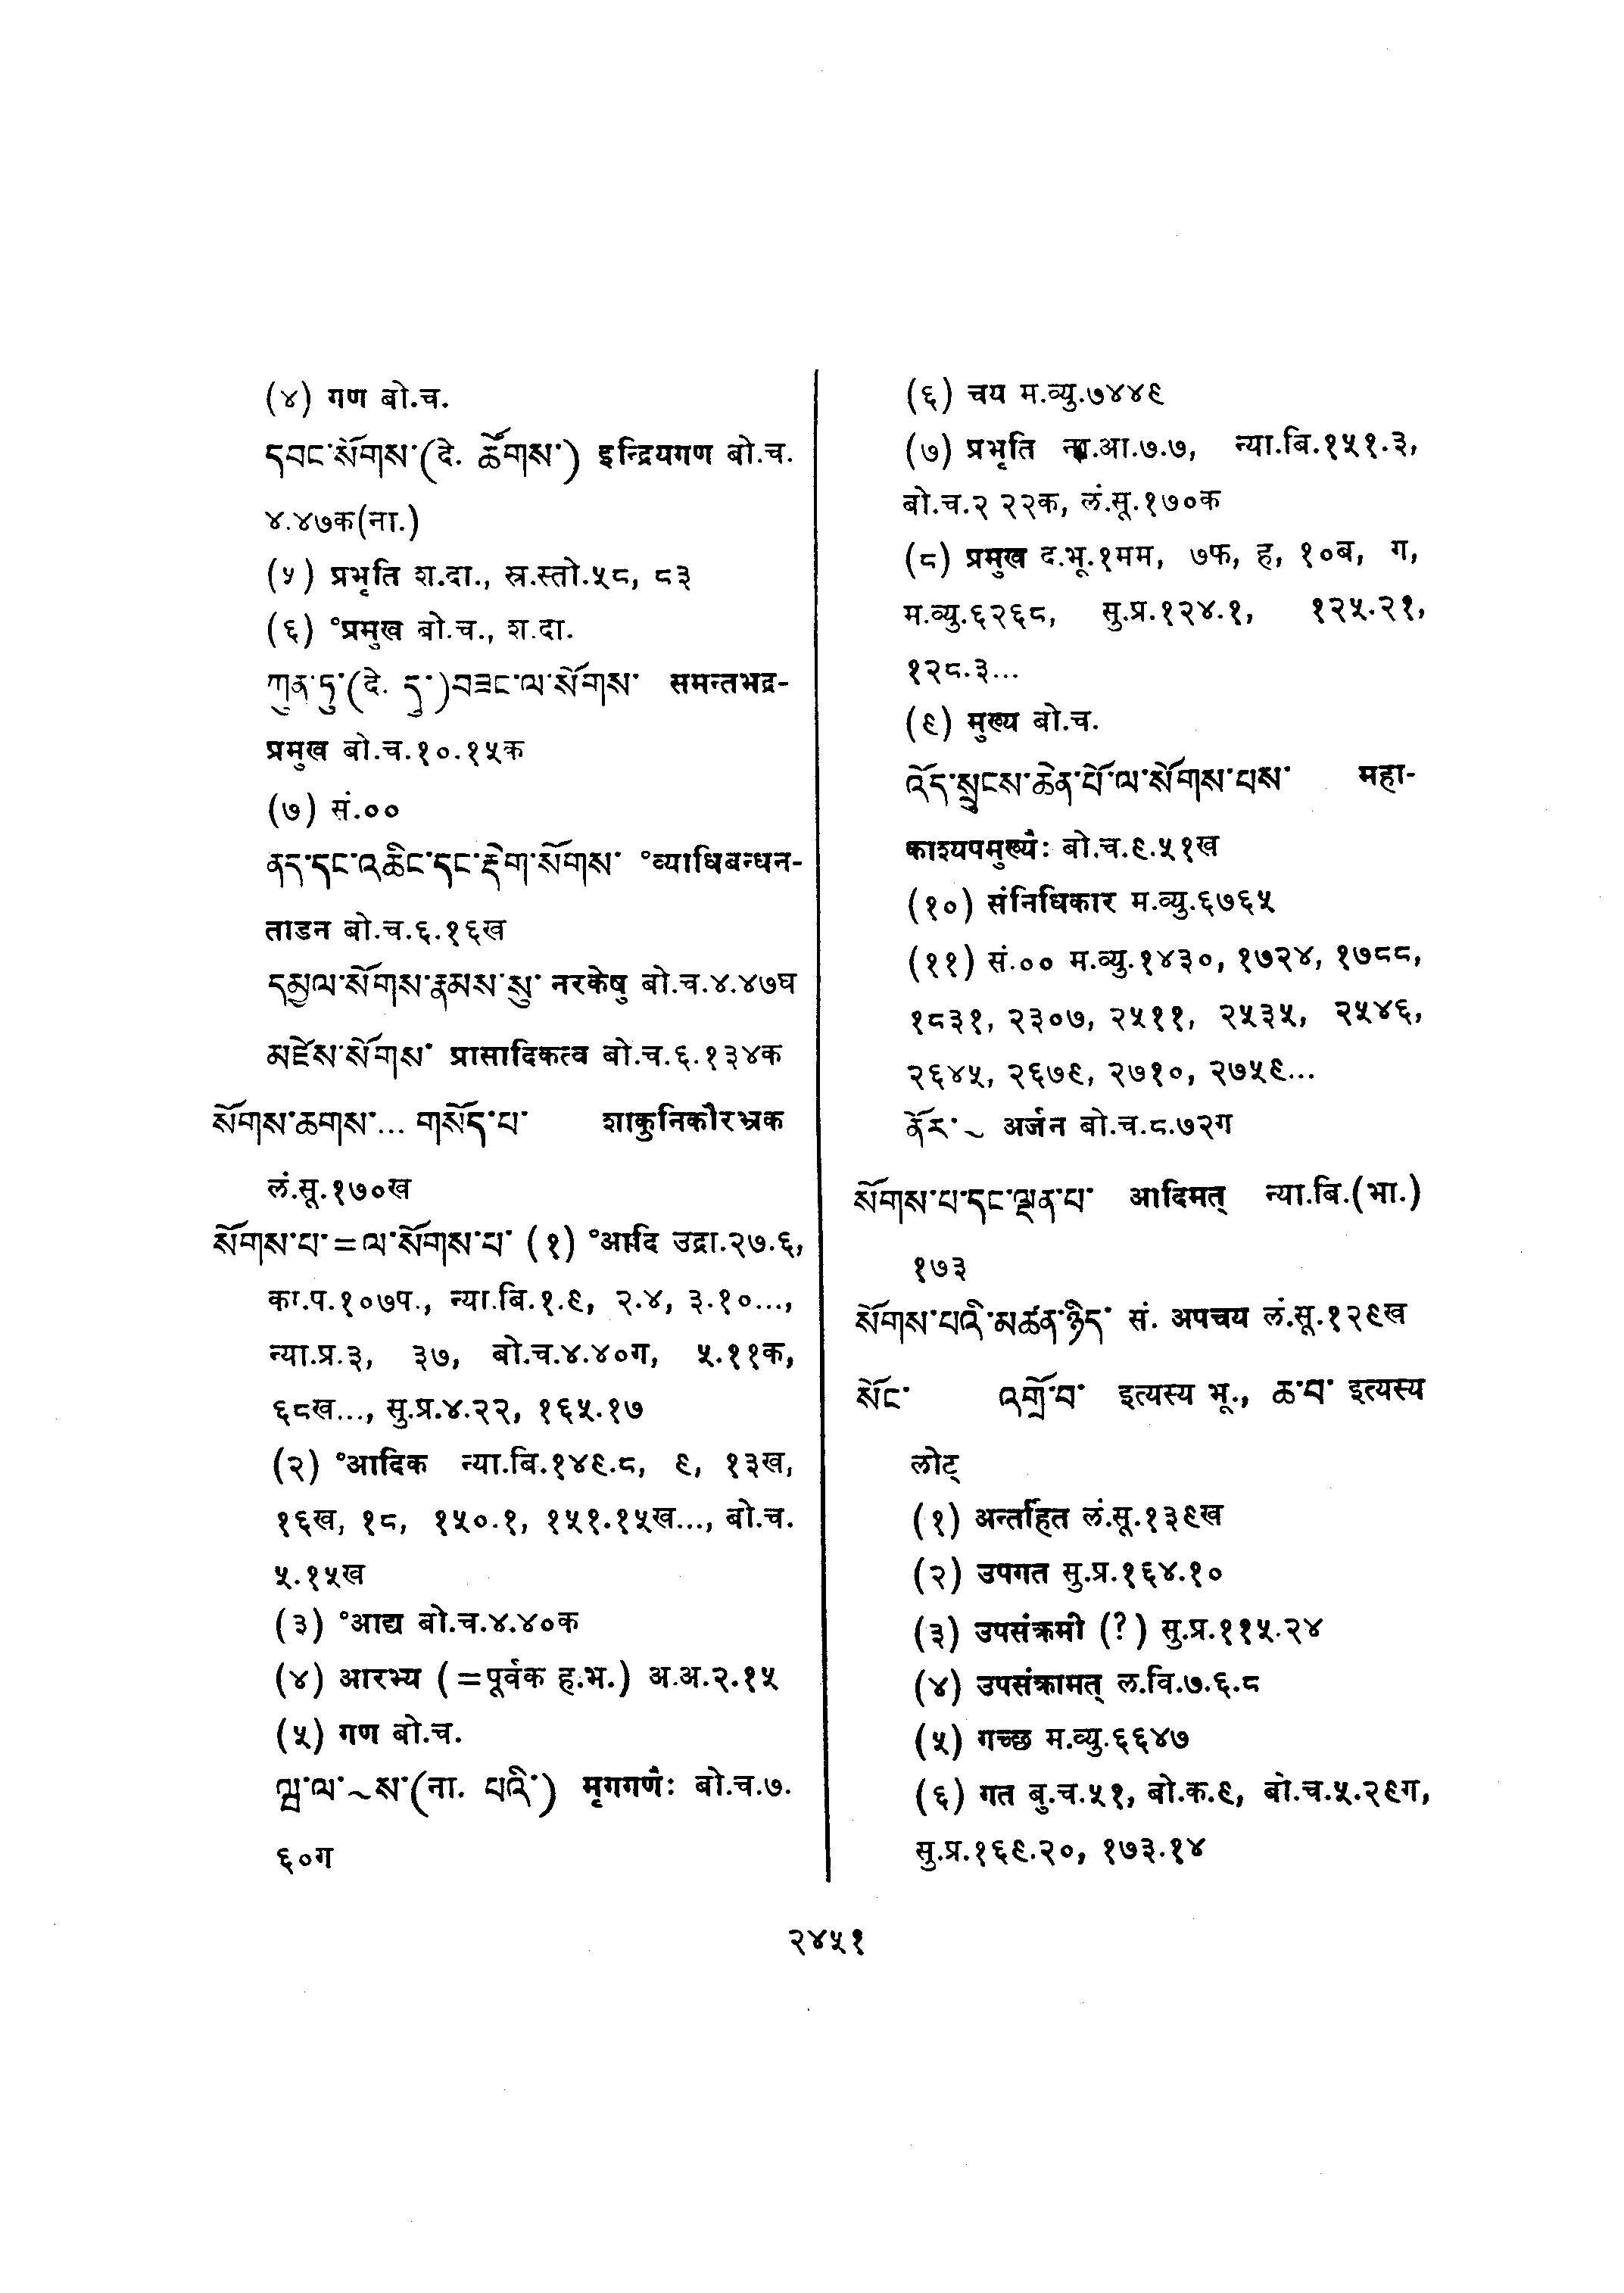 (४) गण बो.च.
དབང་སོགས་(दे. ཚོགས་) इन्द्रियगण बो.च.
४.४७क(ना.)
(५) प्रभृति श.दा., स्र.स्तो.५८, ८३
(६) °प्रमुख बो.च., श.दा.
ཀུན་ཏུ་(दे. དུ་)བཟང་ལ་སོགས་ समन्तभद्र-
प्रमुख बो.च.१०.१५क
(७) सं.००
ནད་དང་འཆིང་དང་རྡེག་སོགས་ °व्याधिबन्धन-
ताडन बो.च.६.१६ख
དམྱལ་སོགས་རྣམས་སུ་ नरकेषु बो.च.४.४७घ
མཛེས་སོགས་ प्रासादिकत्व बो.च.६.१३४क
སོགས་ཆགས་... གསོད་པ་ शाकुनिकौरभ्रक
लं.सू.१७०ख
སོགས་པ་=ལ་སོགས་པ་ (१) °आदि उद्रा.२७.६,
का.प.१०७प., न्या.बि.१.९, २.४, ३.१०...,
न्या.प्र.३, ३७, बो.च.४.४०ग, ५.११क,
६८ख..., सु.प्र.४.२२, १६५.१७
(२) °आदिक न्या.बि.१४९.८, ९, १३ख,
१६ख, १८, १५०.१, १५१.१५ख..., बो.च.
५.१५ख
(३) °आद्य बो.च.४.४०क
(४) आरभ्य (=पूर्वक ह.भ.) अ.अ.२.१५
(५) गण बो.च.
ལྷ་ལ་~ས་(ना. པའི་) मृगगणैः बो.च.७.
६०ग
(६) चय म.व्यु.७४४९
(७) प्रभृति न्या.आ.७.७, न्या.बि.१५१.३,
बो.च.२ २२क, लं.सू.१७०क
(८) प्रमुख द.भू.१मम, ७फ, ह, १०ब, ग,
म.व्यु.६२६८, सु.प्र.१२४.१, १२५.२१,
१२८.३...
(९) मुख्य बो.च.
འོད་སྲུངས་ཆེན་པོ་ལ་སོགས་པས་ महा-
काश्यपमुख्यैः बो.च.९.५१ख
(१०) संनिधिकार म.व्यु.६७६५
(११) सं.०० म.व्यु.१४३०, १७२४, १७८८,
१८३१, २३०७, २५११, २५३५, २५४६,
२६४५, २६७९, २७१०, २७५९...
ནོར་~ अर्जन बो.च.८.७२ग
སོགས་པ་དང་ལྡན་པ་ आदिमत् न्या.बि.(भा.)
१७३
སོགས་པའི་མཚན་ཉིད་ सं. अपचय लं.सू.१२९ख
སོང་ འགྲོ་བ་ इत्यस्य भू., ཆ་བ་ इत्यस्य
लोट्
(१) अन्तर्हित लं.सू.१३९ख
(२) उपगत सु.प्र.१६४.१०
(३) उपसंक्रमी (?) सु.प्र.११५.२४
(४) उपसंक्रामत् ल.वि.७.६.८
(५) गच्छ म.व्यु.६६४७
(६) गत बु.च.५१, बो.क.९, बो.च.५.२९ग,
सु.प्र.१६९.२०, १७३.१४
२४५१